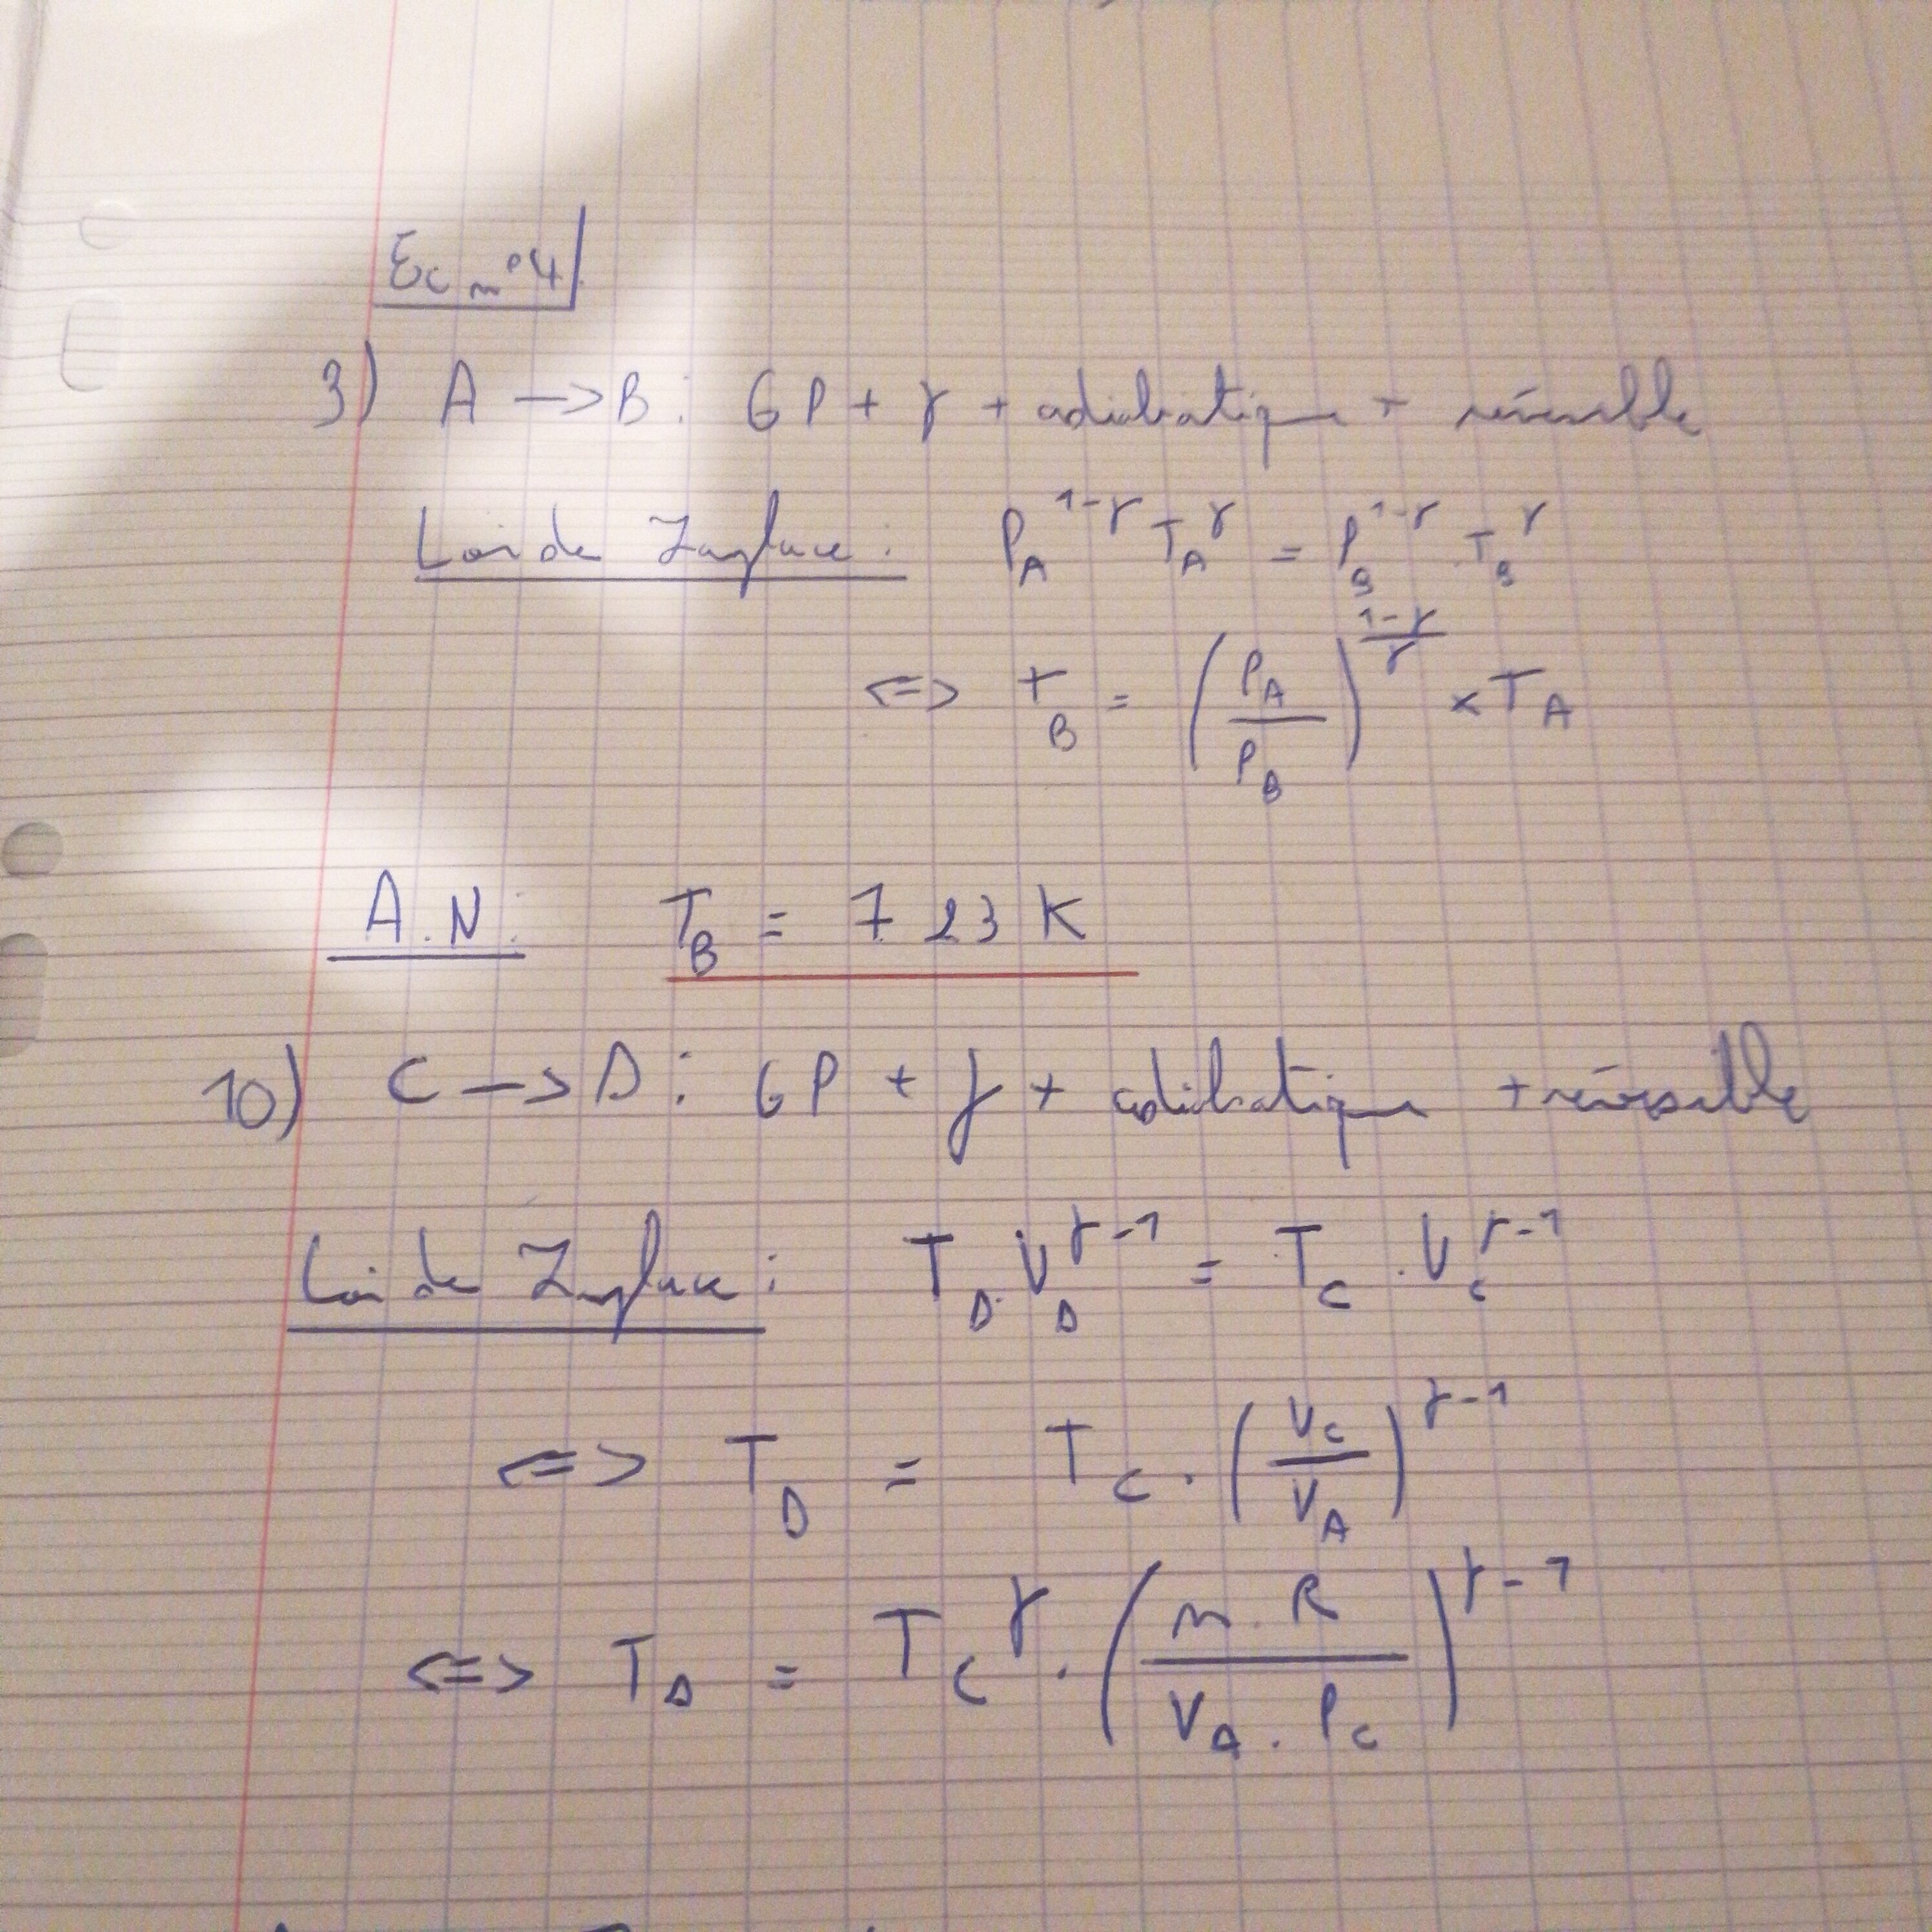 Ec n°4
3) A → B : GP + γ + adiabatique + réversible
Loi de Laplace : P_A^{1-γ} T_A^γ = P_B^{1-γ} T_B^γ
<=> T_B = (P_A / P_B)^{(1-γ)/γ} × T_A
A.N : T_B = 723 K
10) C → D : GP + γ + adiabatique + réversible
Loi de Laplace : T_D . V_D^{γ-1} = T_C . V_C^{γ-1}
<=> T_D = T_C . (V_C / V_A)^{γ-1}
<=> T_D = T_C^γ . (n . R / V_A . P_C)^{γ-1}